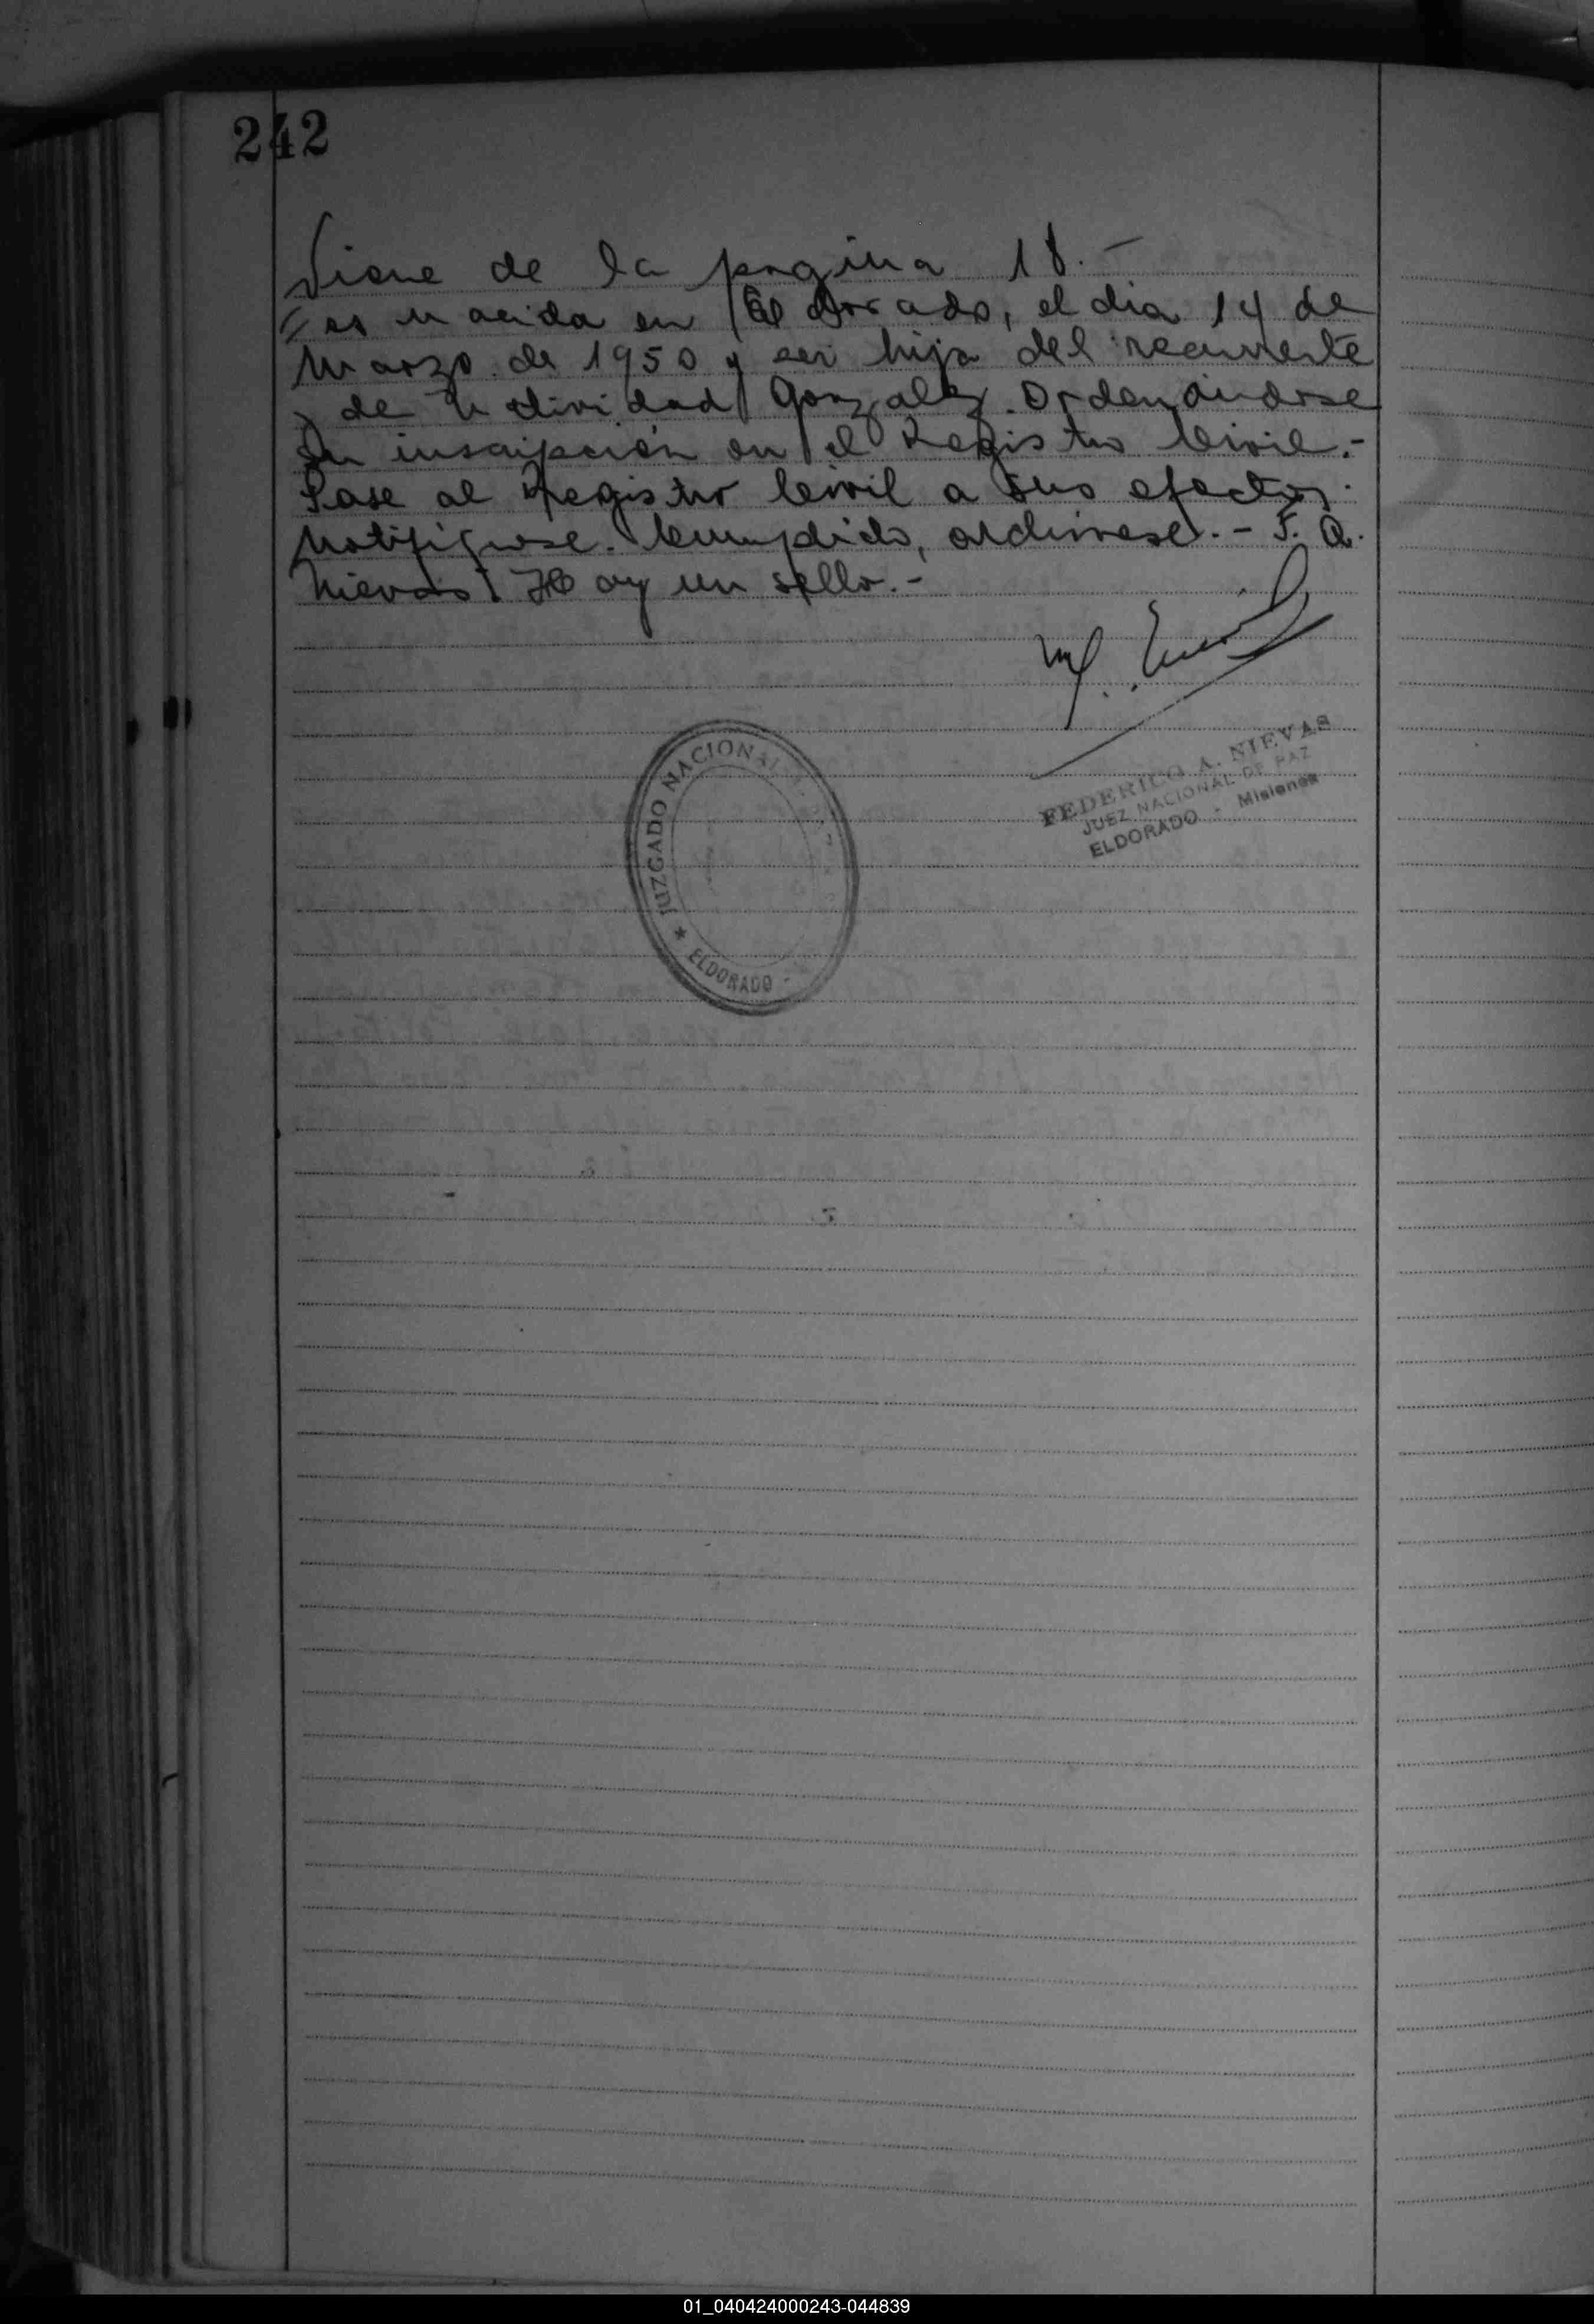 242
Viene de la pagina 18.-
// es nacida en El Dorado, el dia 14 de
Marzo de 1950 y ser hija del recurrente
y de Natividad Gonzalez. Ordenándose
su inscripción en el Registro Civil.-
Pase al Registro Civil a sus efectos.
Notifíquese. Cumplido, archivese.- F. A.
Nievas. Hay un sello.-
FEDERICO A. NIEVAS
JUEZ NACIONAL DE PAZ
ELDORADO - Misiones
JUZGADO NACIONAL
★ ELDORADO -
01_040424000243-044839